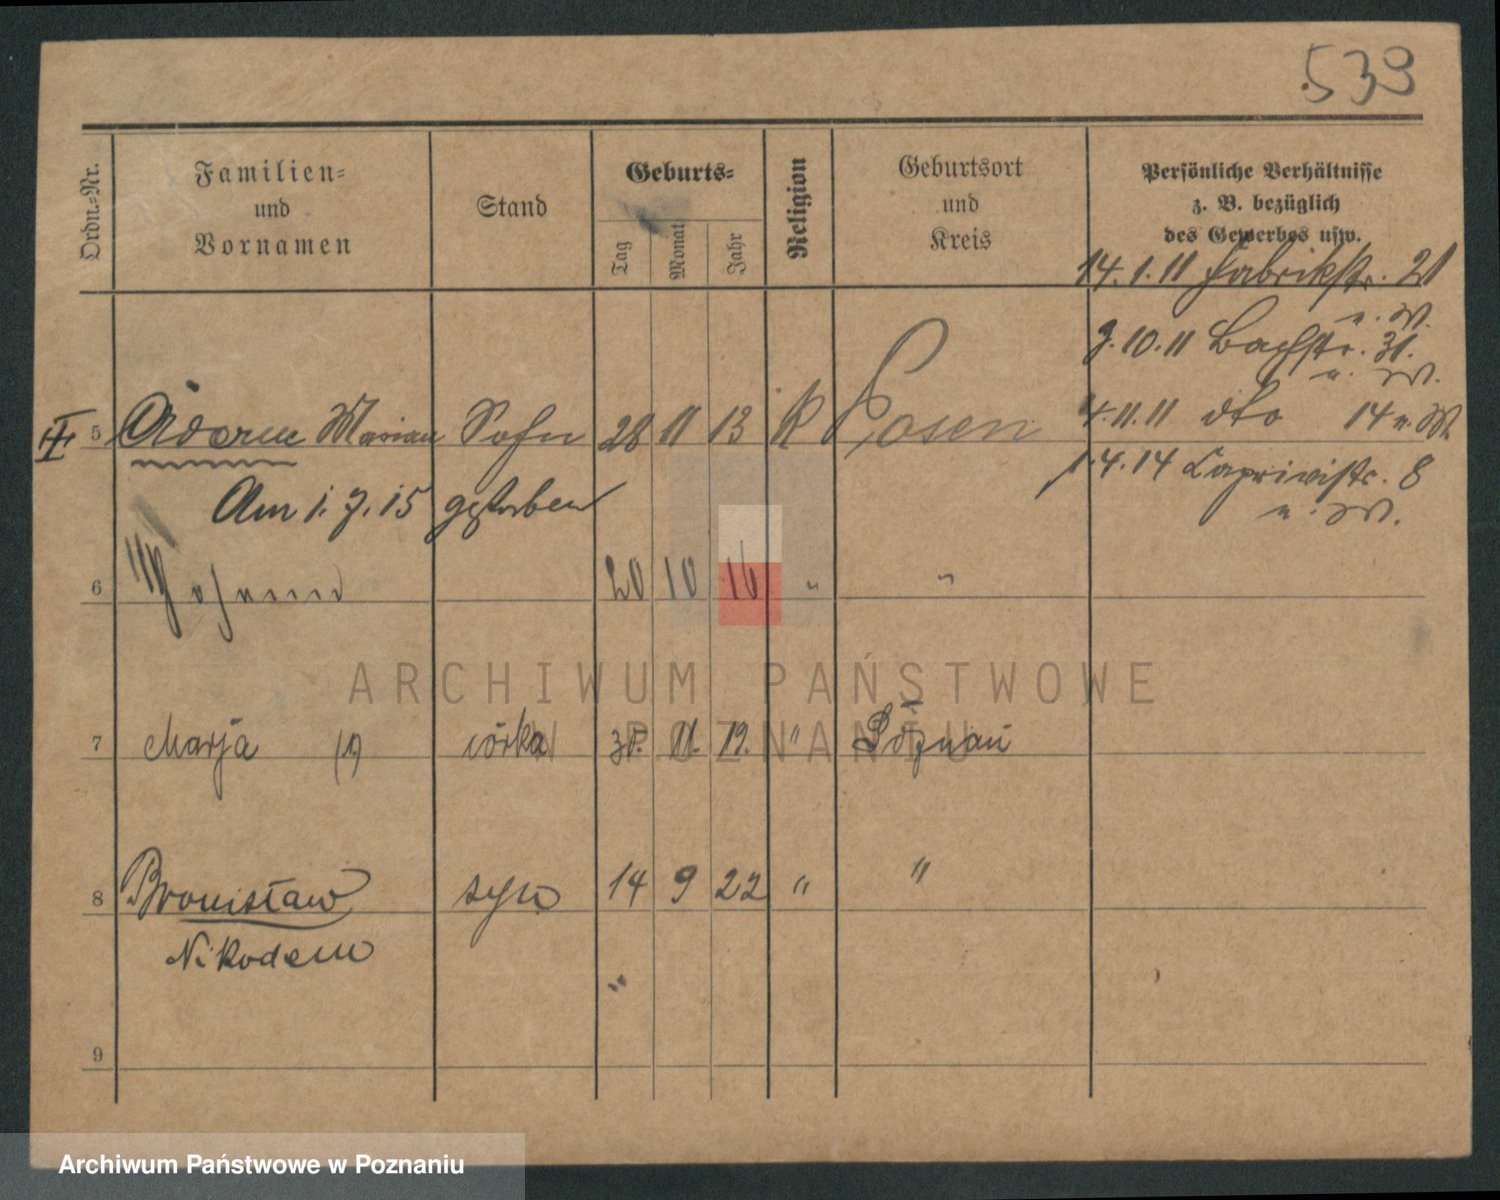 539
Ordn.-Nr.
Familien-
und
Vornamen
Stand
Geburts-
Tag
Monat
Jahr
Religion
Geburtsort
und
Kreis
Persönliche Verhältnisse
z. B. bezüglich
des Gewerbes usw.
14.1.11 Fabrikstr. 21
u. W.
9.10.11 Bachstr. 31.
u. W.
4.11.11 dto 14 u. W.
1.4.14 Caprivistr. 8
u. W.
5 Marian Sohn 28 11 13 K Posen
Am 1.7.15 gestorben
6 20 10 16 " "
7 Marja córka 11. 19. " Poznań
8 Bronisław syn 14 9 22 " "
Nikodem
"
9
ARCHIWUM PAŃSTWOWE
W POZNANIU
Archiwum Państwowe w Poznaniu